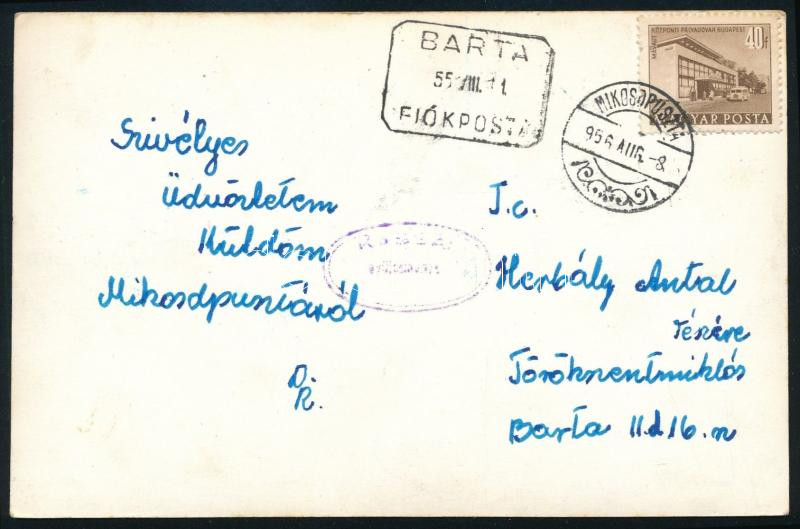 BARTA
55 VIII. 11.
FIÓKPOSTA
MÁVAUT KÖZPONTI PÁLYAUDVAR BUDAPEST
40f
MAGYAR POSTA
MIKOSDPUSZTA
956 AUG. -8.
Szivélyes
Üdvözletem
Küldöm
Mikosdpusztáról
D.
R.
T.c.
Herbály Antal
részére
Törökszentmiklós
Barta II.d.16.sz